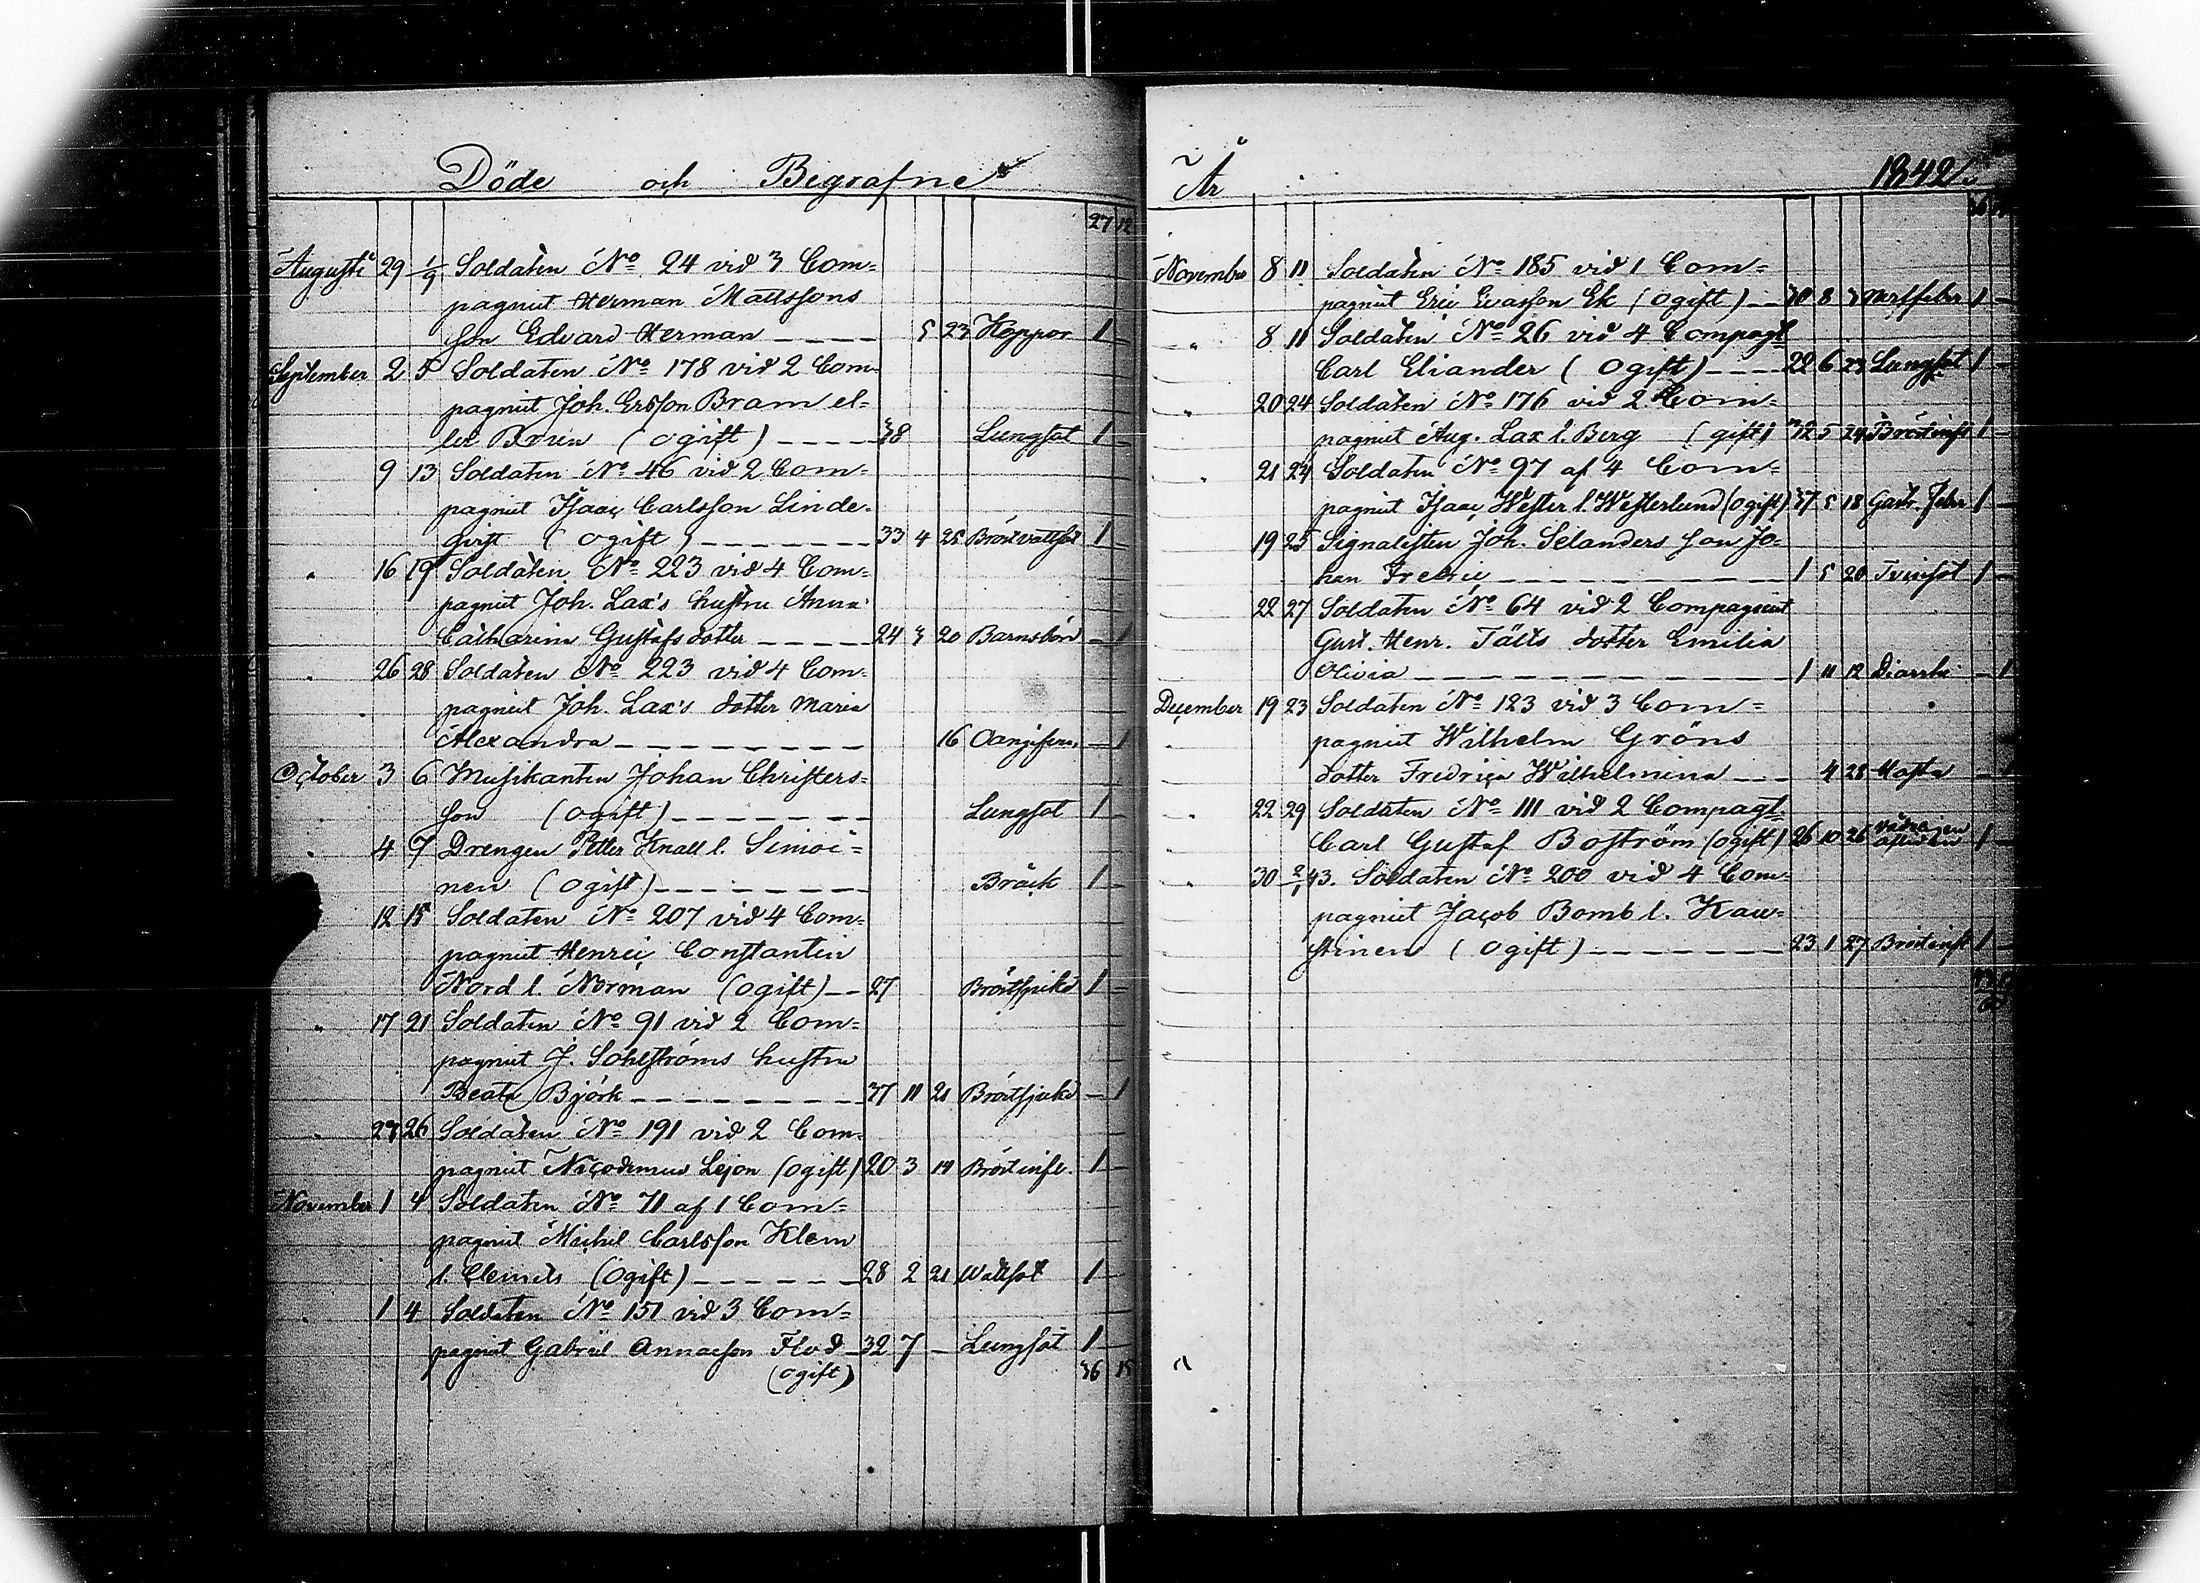 Döde och Begrafne
27 12
Augusti 29 1/9 Soldaten No 24 vid 3 Com=
pagniet Herman Mattssons
son Edvard Herman 5 23 Koppor 1 –
September 2 5 Soldaten No 178 vid 2 Com=
pagniet Joh. Ersson Bram el=
ler Brun (ogift) 38 Lungsot 1 –
" 9 13 Soldaten No 46 vid 2 Com=
pagniet Isaac Carlsson Linde=
qvist (ogift) 33 4 25 Bröstvattsot 1 –
" 16 19 Soldaten No 223 vid 4 Com=
pagniet Joh. Lax's hustru Anna
Catharina Gustafsdotter 24 3 20 Barnsbörd – 1
" 26 28 Soldaten No 223 vid 4 Com=
pagniet Joh. Lax's dotter Maria
Alexandra 16 Oangifven – 1
October 3 6 Musikanten Johan Christers=
son (ogift) Lungsot 1 –
" 4 7 Drengen Petter Knall l. Simoi=
nen (ogift) Bråck 1 –
" 12 15 Soldaten No 207 vid 4 Com=
pagniet Henric Constantin
Nord l. Norman (ogift) 27 Bröstsjukd 1 –
" 17 21 Soldaten No 91 vid 2 Com=
pagniet J. Sohlströms hustru
Beata Björk 37 11 21 Bröstsjukd – 1
" 23 26 Soldaten No 191 vid 2 Com=
pagniet Nicodemus Lejon (ogift) 20 3 14 Bröstinfl. 1 –
November 1 4 Soldaten No 71 af 1 Com=
pagniet Michel Carlsson Klem
l. Clemets (ogift) 28 2 21 Wattsot 1 –
" 1 4 Soldaten No 151 vid 3 Com=
pagniet Gabriel Annasson Flod 32 7 – Lungsot 1 –
(ogift) 36 15
År 1842.
November 8 11 Soldaten No 185 vid 1 Com=
pagniet Eric Evasson Ek (ogift) 8 1 –
" 8 11 Soldaten No 26 vid 4 Compagt
Carl Eliander (ogift) 22 6 23 Lungsot 1 –
" 20 24 Soldaten No 176 vid 2 Com=
pagniet Aug. Lax l. Berg (gift) 32 5 24 Bröstinfl 1 –
" 21 24 Soldaten No 97 af 4 Com=
pagniet Isaac Wester l. Westerlund (ogift) 37 5 18 Gastr. Feber 1 –
19 25 Signalisten Joh. Selanders son Jo=
han Fredric 1 5 20 Tvinsot 1 –
22 27 Soldaten No 64 vid 2 Compagniet
Gust. Henr. Tälts dotter Emilia
Olivia 1 11 12 Diarrhé – 1
December 19 23 Soldaten No 123 vid 3 Com=
pagniet Wilhelm Gröns
dotter Fredrica Wilhelmina 4 28 Hosta – 1
" 22 29 Soldaten No 111 vid 2 Compagt
Carl Gustaf Boström (ogift) 26 10 26 1 –
" 30 2/1 43. Soldaten No 200 vid 4 Com=
pagniet Jacob Bomb l. Kau=
stinen (ogift) 23 1 27 Bröstinfl 1 –